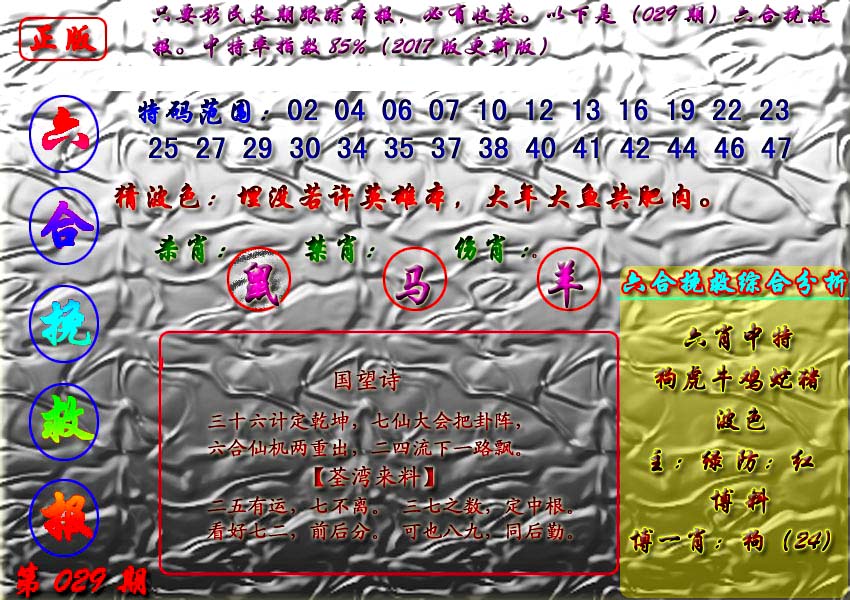 只要彩民长期跟踪本报，必有收获。以下是（029期）六合挽救
报。中特率指数85%（2017版更新版）
正版
六合挽救报
第029期
特码范围：02 04 06 07 10 12 13 16 19 22 23
25 27 29 30 34 35 37 38 40 41 42 44 46 47
猜波色：埋没若许英雄本，大年大鱼共肥肉。
杀肖：鼠 禁肖：马 伤肖：羊。
国望诗
三十六计定乾坤，七仙大会把卦阵，
六合仙机两重出，二四流下一路飘。
【荃湾来料】
二五有运，七不离。 三七之数，定中根。
看好七二，前后分。 可也八九，同后勤。
六合挽救综合分析
六肖中特
狗虎牛鸡蛇猪
波色
主：绿防：红
博料
博一肖：狗（24）